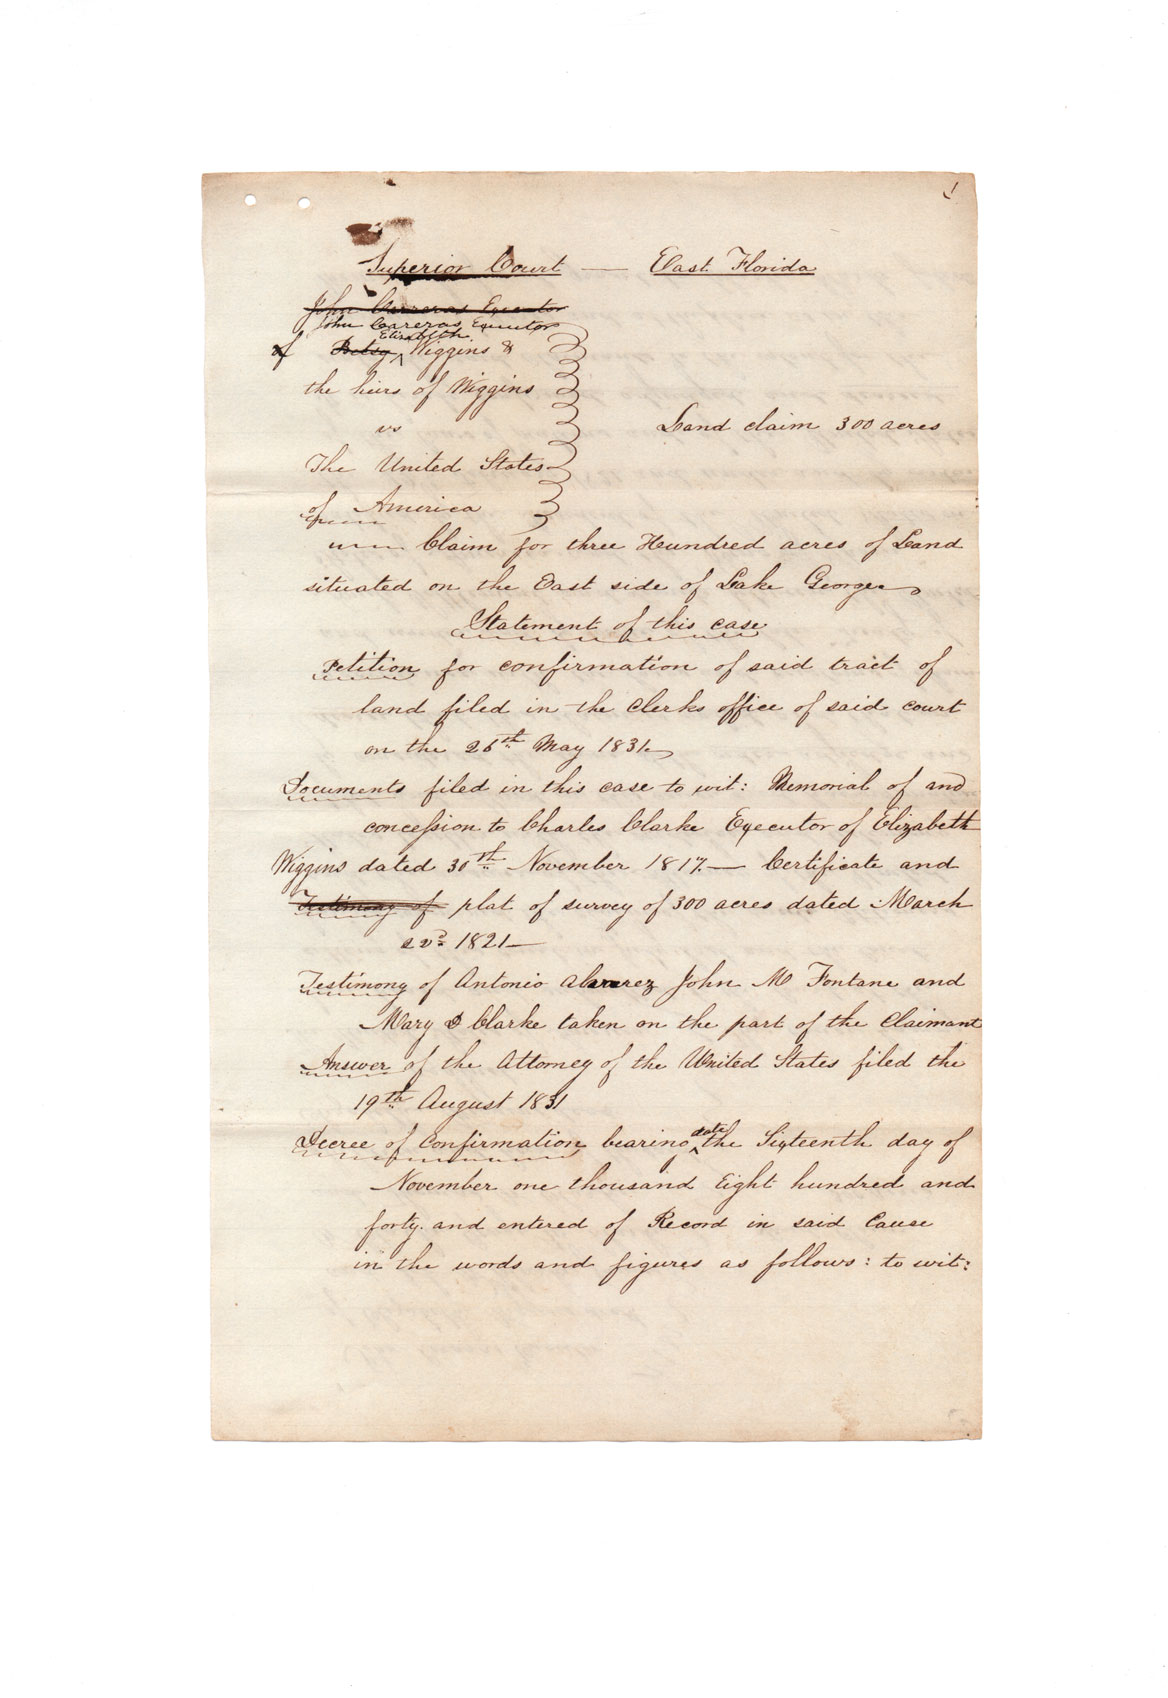 1
Superior Court — East Florida
John Carreras Executor
John Carreras Executor
Elizabeth
of Betsy ^ Wiggins &
the heirs of Wiggins
vs
Land claim 300 acres
The United States
of America
Claim for three Hundred acres of Land
situated on the East side of Lake George
Statement of this case
Petition for confirmation of said tract of
land filed in the Clerks office of said court
on the 26th May 1831
Documents filed in this case to wit: Memorial of and
concession to Charles Clarke Executor of Elizabeth
Wiggins dated 30th November 1817. — Certificate and
Testimony of plat of survey of 300 acres dated March
1821 —
Testimony of Antonio Alvarez John M Fontane and
Mary Clarke taken on the part of the Claimant
Answer of the Attorney of the United States filed the
19th August 1831
date
Decree of confirmation bearing ^ the Sixteenth day of
November one thousand Eight hundred and
forty. and entered of Record in said Cause
in the words and figures as follows: to wit: